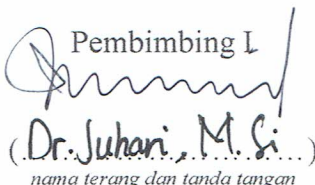 Pembimbing I
(Dr. Juhari, M.Si)
nama terang dan tanda tangan